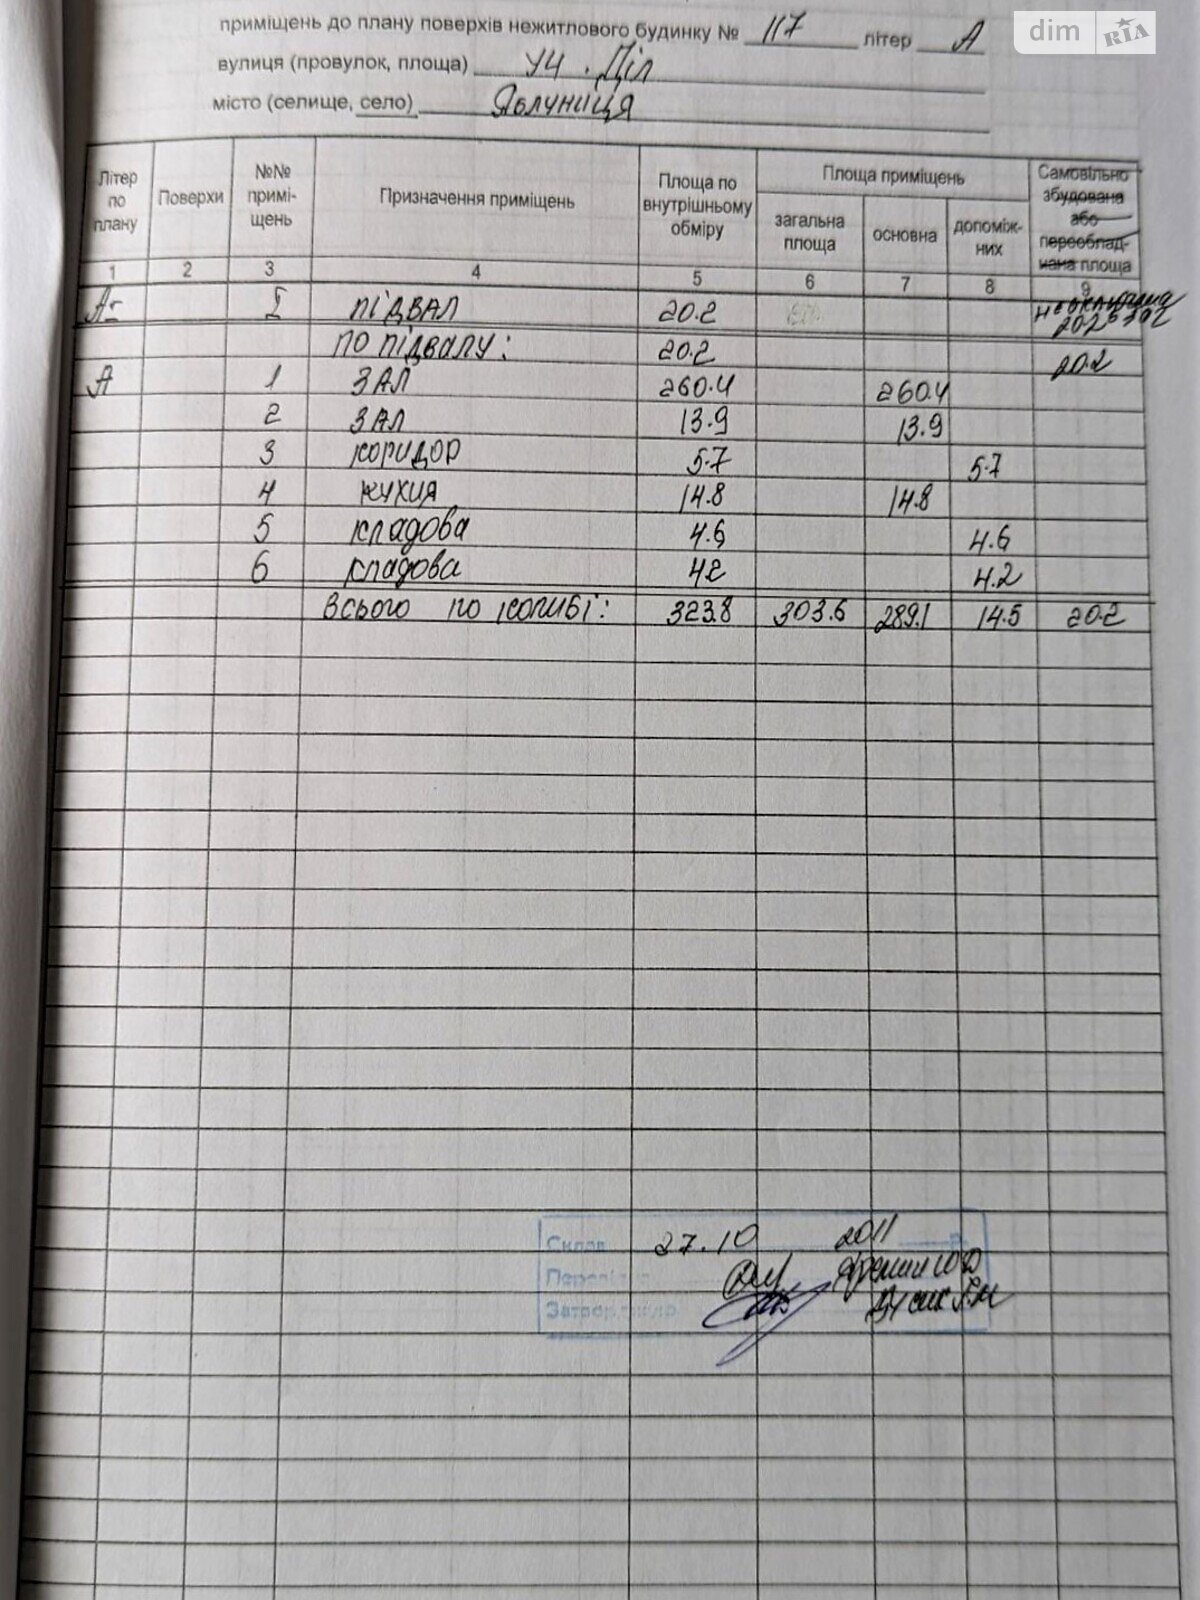 dim RIA
приміщень до плану поверхів нежитлового будинку № 117 літер А
вулиця (провулок, площа) уч. Діл
місто (селище, село) Яблуниця
Літер по плану
Поверхи
№№ примі-щень
Призначення приміщень
Площа по внутрішньому обміру
Площа приміщень
загальна площа
основна
допоміж-них
Самовільно збудована або переоблад-нана площа
1 2 3 4 5 6 7 8 9
І підвал 20.2
по підвалу: 20.2 20.2
А 1 зал 260.4 260.4
2 зал 13.9 13.9
3 коридор 5.7 5.7
4 кухня 14.8 14.8
5 кладова 4.6 4.6
6 кладова 4.2 4.2
Всього по колибі: 323.8 303.6 289.1 14.5 20.2
Склав 27.10 2011 р.